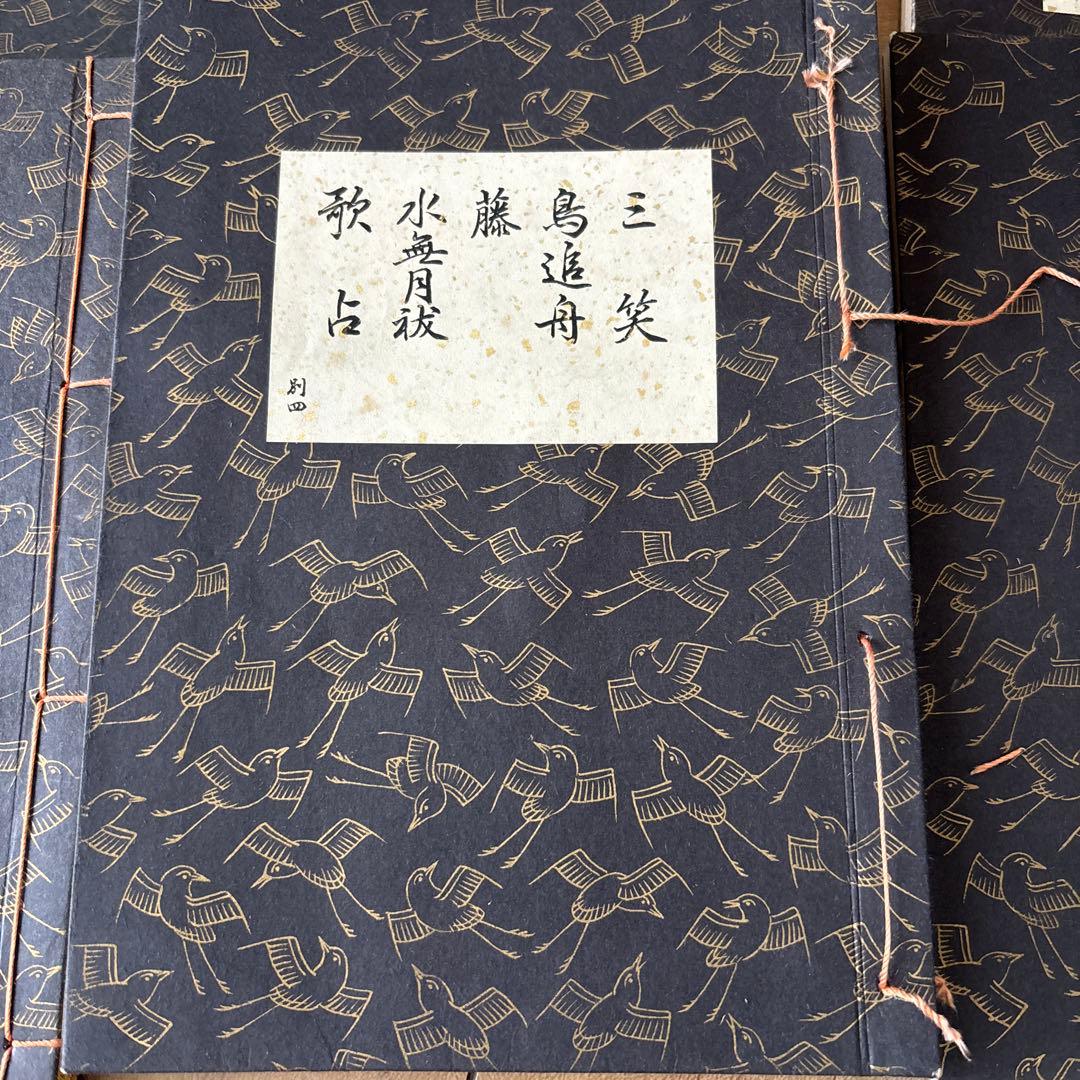 三笑
鳥追舟
藤
水無月祓
歌占
別四